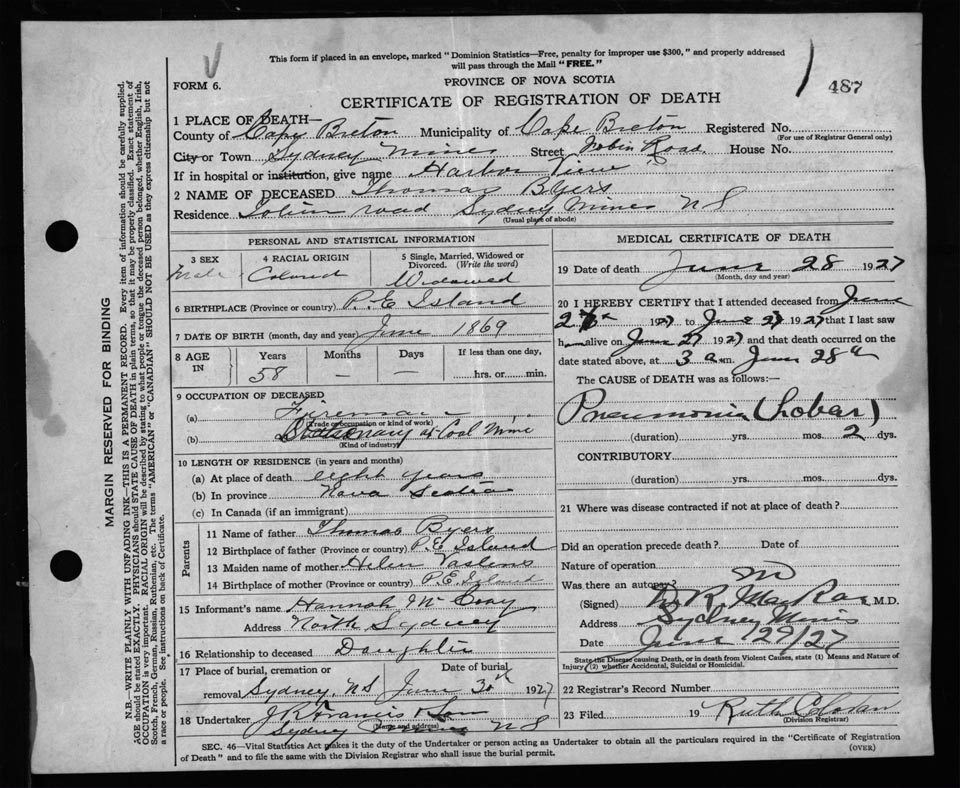 This form if placed in an envelope, marked "Dominion Statistics—Free, penalty for improper use $300," and properly addressed
will pass through the Mail "FREE."
FORM 6.
PROVINCE OF NOVA SCOTIA
487
CERTIFICATE OF REGISTRATION OF DEATH
1 PLACE OF DEATH—
County of Cape Breton Municipality of Cape Breton Registered No.
(For use of Registrar General only)
City or Town Sydney Mines Street Tobin Road House No.
If in hospital or institution, give name Harbor View
2 NAME OF DECEASED Thomas Byers
Residence Tobin road Sydney Mines N S
(Usual place of abode)
PERSONAL AND STATISTICAL INFORMATION
3 SEX
Male
4 RACIAL ORIGIN
Colored
5 Single, Married, Widowed or
Divorced. (Write the word)
Widowed
6 BIRTHPLACE (Province or country) P. E Island
7 DATE OF BIRTH (month, day and year) June 1869
8 AGE
IN
Years
58
Months
—
Days
—
If less than one day,
hrs. or min.
9 OCCUPATION OF DECEASED
(a) Fireman
(Trade or occupation or kind of work)
(b) Stationary at Coal Mine
(Kind of industry)
10 LENGTH OF RESIDENCE (in years and months)
(a) At place of death eight years
(b) In province Nova Scotia
(c) In Canada (if an immigrant)
Parents
11 Name of father Thomas Byers
12 Birthplace of father (Province or country) P.E Island
13 Maiden name of mother Helen
14 Birthplace of mother (Province or country) P.E. Island
15 Informant's name Hannah McCoay
Address North Sydney
16 Relationship to deceased Daughter
17 Place of burial, cremation or Date of burial
removal Sydney, NS June 30th 1927
18 Undertaker J R Francis & Son
(Name and address)
Sydney N S
MEDICAL CERTIFICATE OF DEATH
19 Date of death June 28 1927
(Month, day and year)
20 I HEREBY CERTIFY that I attended deceased from June
27th 1927 to June 27 1927 that I last saw
h alive on June 27 1927 and that death occurred on the
date stated above, at 3 a m. June 28th
The CAUSE OF DEATH was as follows:—
Pneumonia (Lobar)
(duration) yrs. mos. 2 dys.
CONTRIBUTORY
(duration) yrs. mos. dys.
21 Where was disease contracted if not at place of death?
Did an operation precede death? Date of
Nature of operation
Was there an autopsy?
(Signed) MacRae M.D.
Address Sydney Mines
Date June 29/27
State the Disease causing Death, or in death from Violent Causes, state (1) Means and Nature of
Injury (2) whether Accidental, Suicidal or Homicidal.
22 Registrar's Record Number
23 Filed 19 Ruth
(Division Registrar)
SEC. 46—Vital Statistics Act makes it the duty of the Undertaker or person acting as Undertaker to obtain all the particulars required in the "Certificate of Registration
of Death" and to file the same with the Division Registrar who shall issue the burial permit.
(OVER)
MARGIN RESERVED FOR BINDING
N.B.—WRITE PLAINLY WITH UNFADING INK—THIS IS A PERMANENT RECORD. Every item of information should be carefully supplied.
AGE should be stated EXACTLY. PHYSICIANS should STATE CAUSE OF DEATH in plain terms, so that it may be properly classified. Exact statement of
OCCUPATION is very important. RACIAL ORIGIN will be described by stating to what people or tongue the deceased person belonged, whether English, Irish,
Scotch, French, German, Russian, Ruthenian, etc. The terms "AMERICAN" or "CANADIAN" SHOULD NOT BE USED as they express citizenship but not
a race or people. See instructions on back of Certificate.